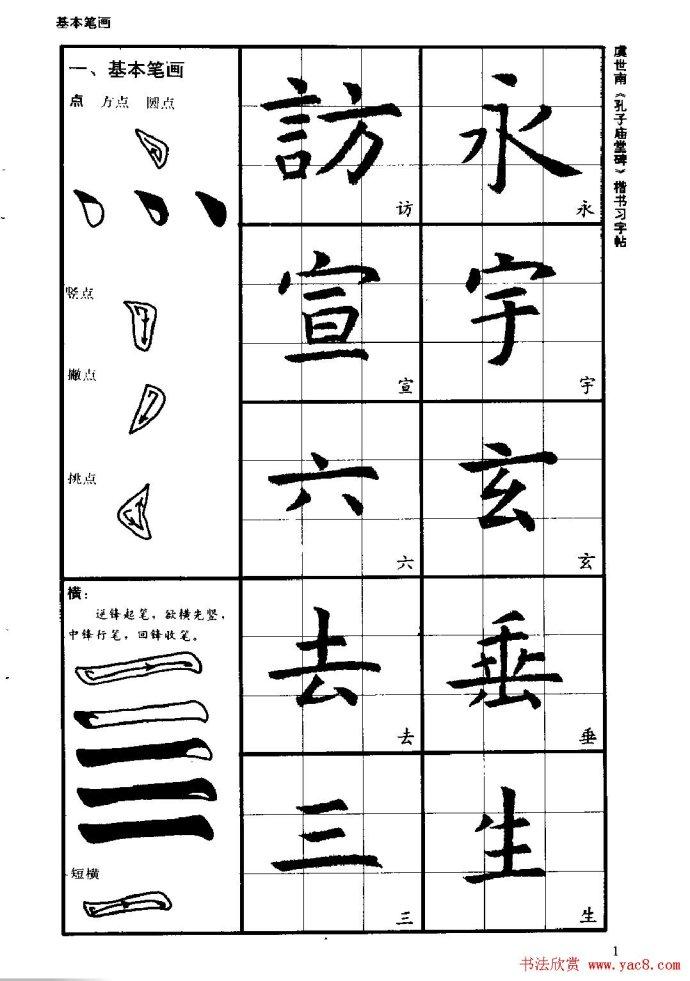 基本笔画
虞世南《孔子庙堂碑》楷书习字帖
一、基本笔画
点 方点 圆点
竖点
撇点
挑点
横：
逆锋起笔，欲横先竖，
中锋行笔，回锋收笔。
短横
訪 永
访 永
宣 宇
宣 宇
六 玄
六 玄
去 垂
去 垂
三 生
三 生
1
书法欣赏 www.yac8.com